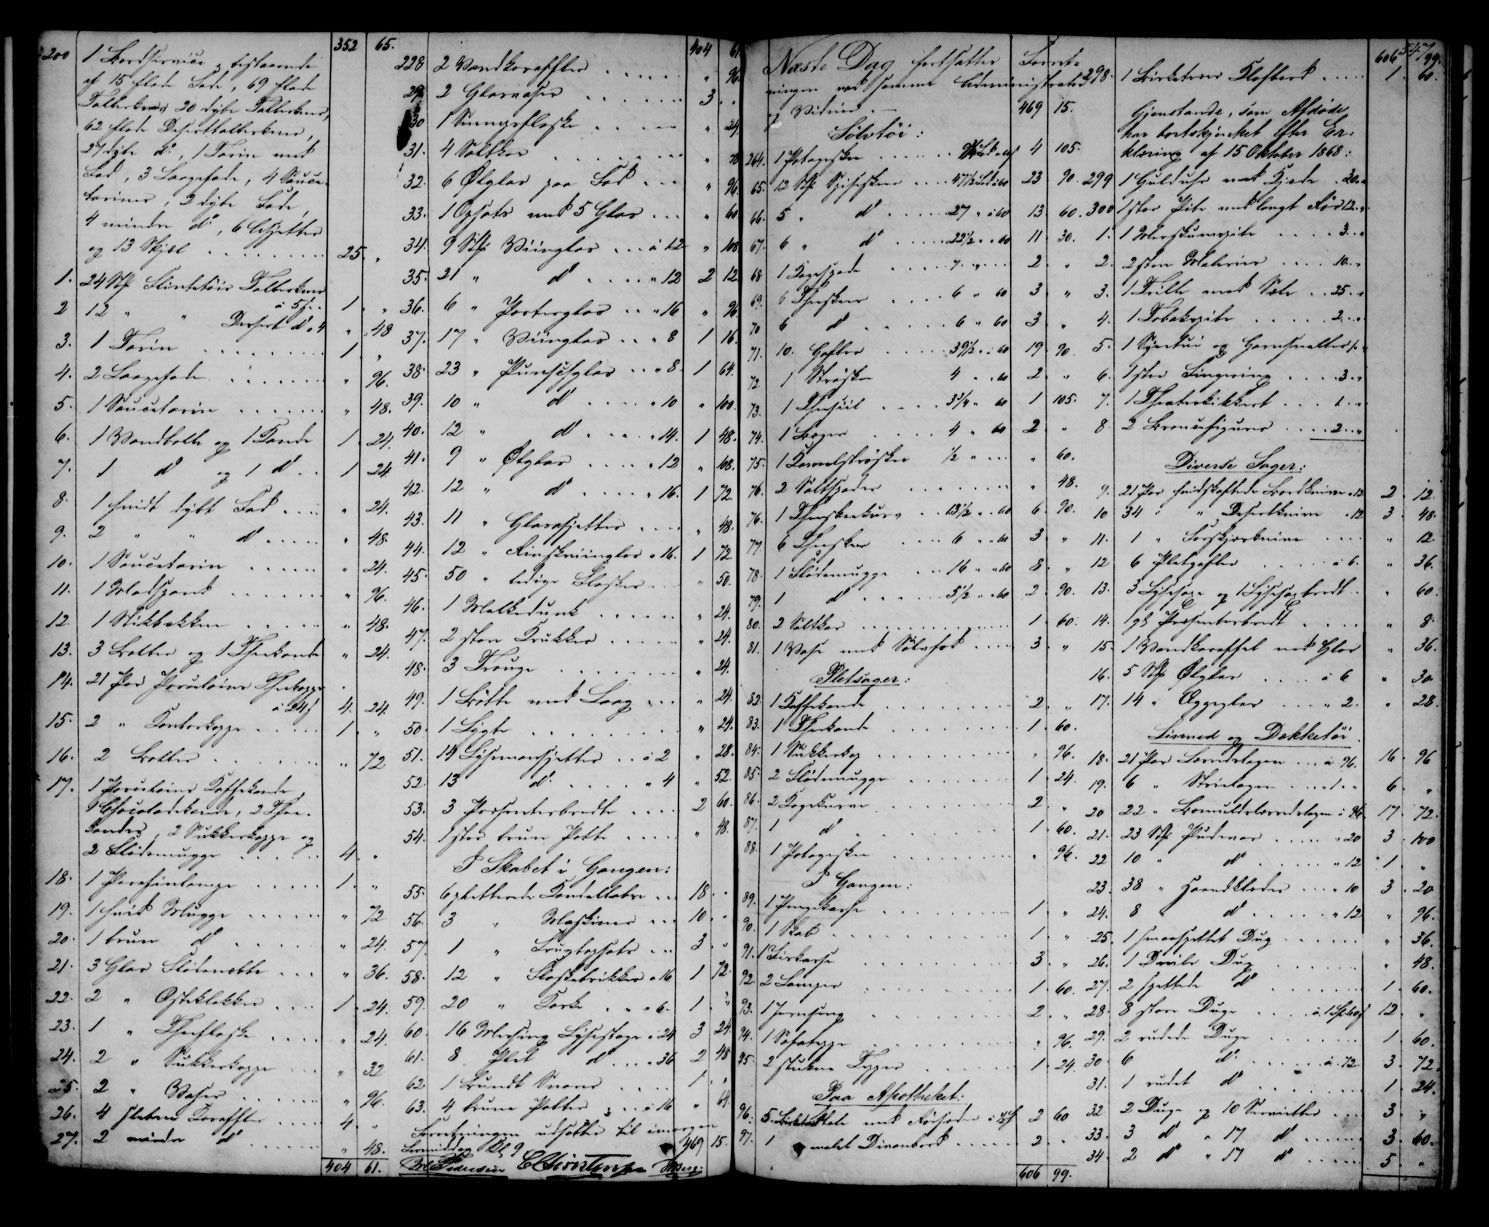 352 65.
200 1 Bordservice, bestaaende
af 15 flade Fade, 69 flade
Tallerkener, 20 dybe Tallerkener,
62 flade Deserttallerkener,
27 dybe do, 1 Terrin med
Fad, 3 Laagefade, 4 Sauce-
teriner, 2 dybe Fade
4 mindre do, 6 Assietter
og 13 Skjel . . . 25. "
1. 24 Stk Steentøis Tallerkener
à 5 ß . . 1 "
2 12 " " Dessert do à 4 " 48
3. 1 Terrin . . . 1. "
4. 2 Laagefade . . . " 96.
5. 1 Sauceterrin . . . " 48.
6. 1 Vandbolle og 1 Kande 1. 24.
7. 1 do og 1 do . . 1 24
8. 1 hvidt dybt Fad . . . " 24.
9. 2 " " do . . . " 48.
10. 1 Sauceterrin . . . " 24.
11. 1 Madspand . . . " 96.
12. 1 Stikbækken . . . " 48.
13. 3 Boller og 1 Theekande " 24.
14. 21 Par Porcelains Theekopper
à 24 ß 4. 24.
15. 2 " Kontorkopper . . . 1. "
16. 2 Boller . . . " 72
17. 1 Porcelains Kaffekande,
1 Chocoladekande, 2 Thee-
kander, 2 Sukkerkopper og
2 Flødemugger . . . 4. "
18. 1 Parafinlampe . . . 1. "
19. 1 hvid Mugge . . . " 72
20. 1 brun do . . . " 24.
21. 3 Glas Flødenette . . . " 36.
22. 2 " Osteklokker . . . 1. 24.
23. 1 " Theeflaske . . . " 24.
24. 2 " Sukkerkopper . . . " 32
25. 2 " Vaser . . . " 96.
26. 4 slebne Karafler . . . 4. "
27. 2 mindre do . . . " 48.
404 61.
404 61
228 2 Vandkarafler . . . " 96.
29. 2 Glasvaser . . . 3 "
30 1 Sennepsflaske . . . " 24
31. 4 Saltkar . . .
32. 6 Ølglas paa Fod . . . " 96.
33. 1 Opsats med 5 Glas . . . " 60
34. 9 Stk Viinglas . . . à 12 " 108
35. 21 " do . . . " 12 2 12
36. 6 " Porterglas . . " 16 " 96
37. 17 " Viinglas . . " 8 1 16.
38. 23 " Punschglas . . " 8. 1 64.
39. 10 " do . . " 10 " 100.
40. 12 " do . . " 14. 1 48.
41. 9 " Ølglas . . . " 12 " 108.
42. 12 " do . . . " 16. 1 72.
43. 11 " Glasasietter . . . " 48.
44. 12 " Rinskviinglas " 16. 1 72
45. 50 " ledige Flasker . . " 50.
46. 1 Melkedunk . . . " 24.
47. 2 store Krukker . . . " 24.
48. 3 Trouge . . . " 24.
49. 1 Bøtte med Laag . . . " 24.
50. 1 Lygte . . . " 24.
51. 14 Lysemansjetter . . à 2 " 28.
52. 13 do. . . . " 4 " 52.
53. 3 Presenterbrædte . . . 2 60.
54. 1 stor brun Potte . . . " 48.
I Skabet i Gangen:
55. 6 pletterede Kandelabre . . . 18. "
56. 3 " Maskiner . . . 10. "
57. 1 " Frugtopsats . . . 3 "
58. 12 " Flaskebrikker " 16 1 72.
59. 20 " Korke . . . " 6. 1. "
60. 16 Messing Lysestager " 24 3 24
61. 8 Plet do . . " 36 2 48
62. 1 Bundt Snore . . . 1. "
63. 4 brune Potter . . . à 16 " 64.
Forretningen udsattes til imorgen
Formiddag Kl. 9. 469 15.
Næste Dag fortsattes Forret-
ningen ved samme Administrator
og Vidner. — 469 15.
Sølvtøi:
264. 1 Potageskee . . . 4 105.
65. 12 Stk Spiseskeer . . 47½ Lod à 60 23 90.
66. 5 " do . . . 27 " à 60 13 60.
67. 6 " do . . . 22½ " " 60 11 30.
68 1 Kagespade . . . 2 "
69. 6 Theskeer . . . 6 " 60 3 "
70 6 do . . . 6 " 60 3 "
71. 10. Gafler . . . 39½ " à 60 19 90.
72 1 Strøske . . . 4 " " 60 2 "
73. 1 Theesiil . . . 3¾ " 60 1 105.
74. 1 Bæger . . . 4 " 60 2 "
75. 1 Kanelstrøskee ½ " . . . " 60.
76. 2 Saltspader . . . " 48.
76. 1 Theskeekurv . . . 13½ " à 60 6 90.
77. 6 Theskeer . . . 6 " " 60 3 "
78. 1 Flødemugge . . . 16 " " 60 8 "
79. 1 do . . . 5½ " " 60 2 90.
80. 2 Saltkar . . . 1 60.
81. 1 Vase med Sølvfod . . . 3 "
Pletsager:
82. 1 Kaffekande . . . 2 "
83. 1 Theekande . . . 1. 60.
84. 1 Sukkerkop . . . " 96.
85. 2 Flødemugger . . . 1. 24.
86. 2 Kagekurve . . . 2 "
87. 1 do . . . 1. 60.
88. 1 Potageskee . . . " 96.
I Gangen:
89. 1 Pengekasse . . . 1 "
90. 1 Skab . . . 1 "
91. 1 . . . 3 "
92 2 Lamper . . . 1. 60.
93. 1 Jernseng . . . 2 "
94. 1 Sofatæppe . . . " 96.
95. 2 stukne Tepper . . . 1 24
Paa Apotheket:
96. 5 Stole med Rørsæder à 2 60
97. 1 malet Divanbord . . . 2 "
606 99.
606 99.
298. 1 Birketræes Klapbord . . . 1. 60.
Gjenstande, som Afdøde
har bortskjænket efter Er-
klæring af 15 Oktober 1868:
299 1 Gulduhr med Kjede . 30. "
300 1 stor Pibe med langt Rør 12. "
1. 1 Merskumspibe . . . 3. "
2. 2 store Malerier . . . 10. "
3. 1 Trille med Sele . . 25. "
4. 1 Tobakspibe . . . 2. "
5. 1 Syetui og Garnsnelle 1. "
6. 1 stor Fingerring . . . 3. "
7. 1 Theaterkikkert . . . 1. "
8. 2 Broncefigurer . . . 2. "
Diverse Sager:
9. 21 Par hvidskaftede Bordknive à 12 2 12.
10 34 : " Dessertknive " 12 3 48.
11. 1 " Forskjærknive . . . " 12
12 6 Pletgafler . . . à 6. " 36.
13. 3 Lysesaxe og 1 Lysesaxbrædt . . " 60.
14. 98 Presenterbrædt . . . " 8.
15. 1 Vandkarafsel med Glas . . " 36.
16. 5 Stk Ølglas . . . à 6 " 30
17. 14 " Æggeglas . . . " 2. " 28.
Linned og Dækketøi.
18. 21 Par Lerredslagen . . . à 96. 16. 96
19. 6 " Strielagen . . . 6. "
20 22 " Bomuldslærredslagen à 96. 17 72.
21. 23 Stk Pudevar . . . " 20 3 100
22 10 " do . . . " 12 1 "
23. 38 " Haandklæder . . . " 10 3 20
24. 8 " do . . . " 12. " 96.
25. 1 smaaspettet Dug . . . " 36.
26. 1 Dreils Dug . . . " 48.
27. 2 spettede do . . . 1. 60.
28. 8 store Duge . . . 12. "
29. 2 rudede Duge . . . 1 60.
30. 6 do . . . à 72. 3. 72
31. 1 rudet do . . . 1 24.
32 2 Duge og 10 Servietter . . . 3. "
33. 3 do " 17 do . . . 3. 60.
34. 2 do " 17 do . . . 5 "